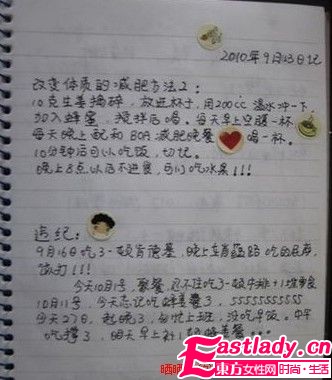 2010年9月13日记
改变体质的减肥方法2:
10克生姜捣碎,放进杯子,用200cc温水冲一下
加入蜂蜜,搅拌后喝。每天早上空腹一杯
每天晚上配和BOA减肥晚餐 喝一杯。
10分钟后可以吃饭,切记。
晚上8点以后不进食,可以吃水果!!!
违纪:
9月16日吃了一顿肯德基,晚上在
饭打!!!
今天10月1号,聚餐,忍不住吃了一顿牛排+1堆零食
10月11号,今天忘记吃蜂姜粉了,5555555555
今天27日,起晚了,匆忙上班,没吃早饭。中午
吃撑了,明天早上补1顿蜂姜餐...
Eastlady.cn
东方女性网 时尚·生活